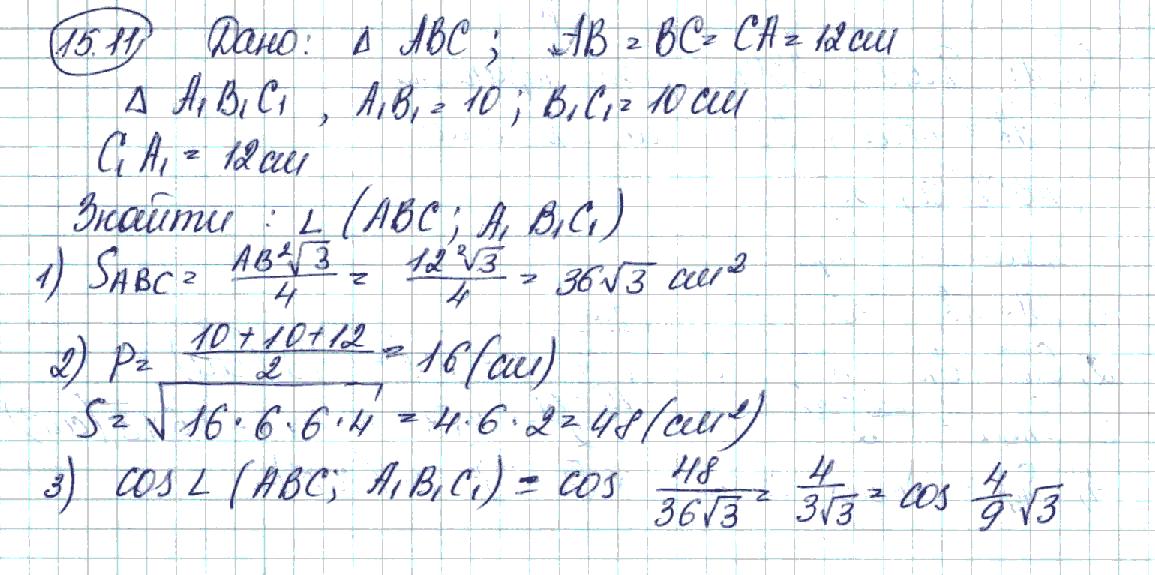 15.11, Дано: Δ ABC; AB = BC = CA = 12 см
Δ A₁B₁C₁, A₁B₁ = 10; B₁C₁ = 10 см
C₁A₁ = 12 см
Знайти: ∠ (ABC; A₁B₁C₁)
1) S_ABC = AB²√3/4 = 12²√3/4 = 36√3 см²
2) P = (10+10+12)/2 = 16 (см)
S = √(16·6·6·4) = 4·6·2 = 48 (см²)
3) cos ∠ (ABC; A₁B₁C₁) = cos 48/(36√3) = 4/(3√3) = cos 4/9 √3